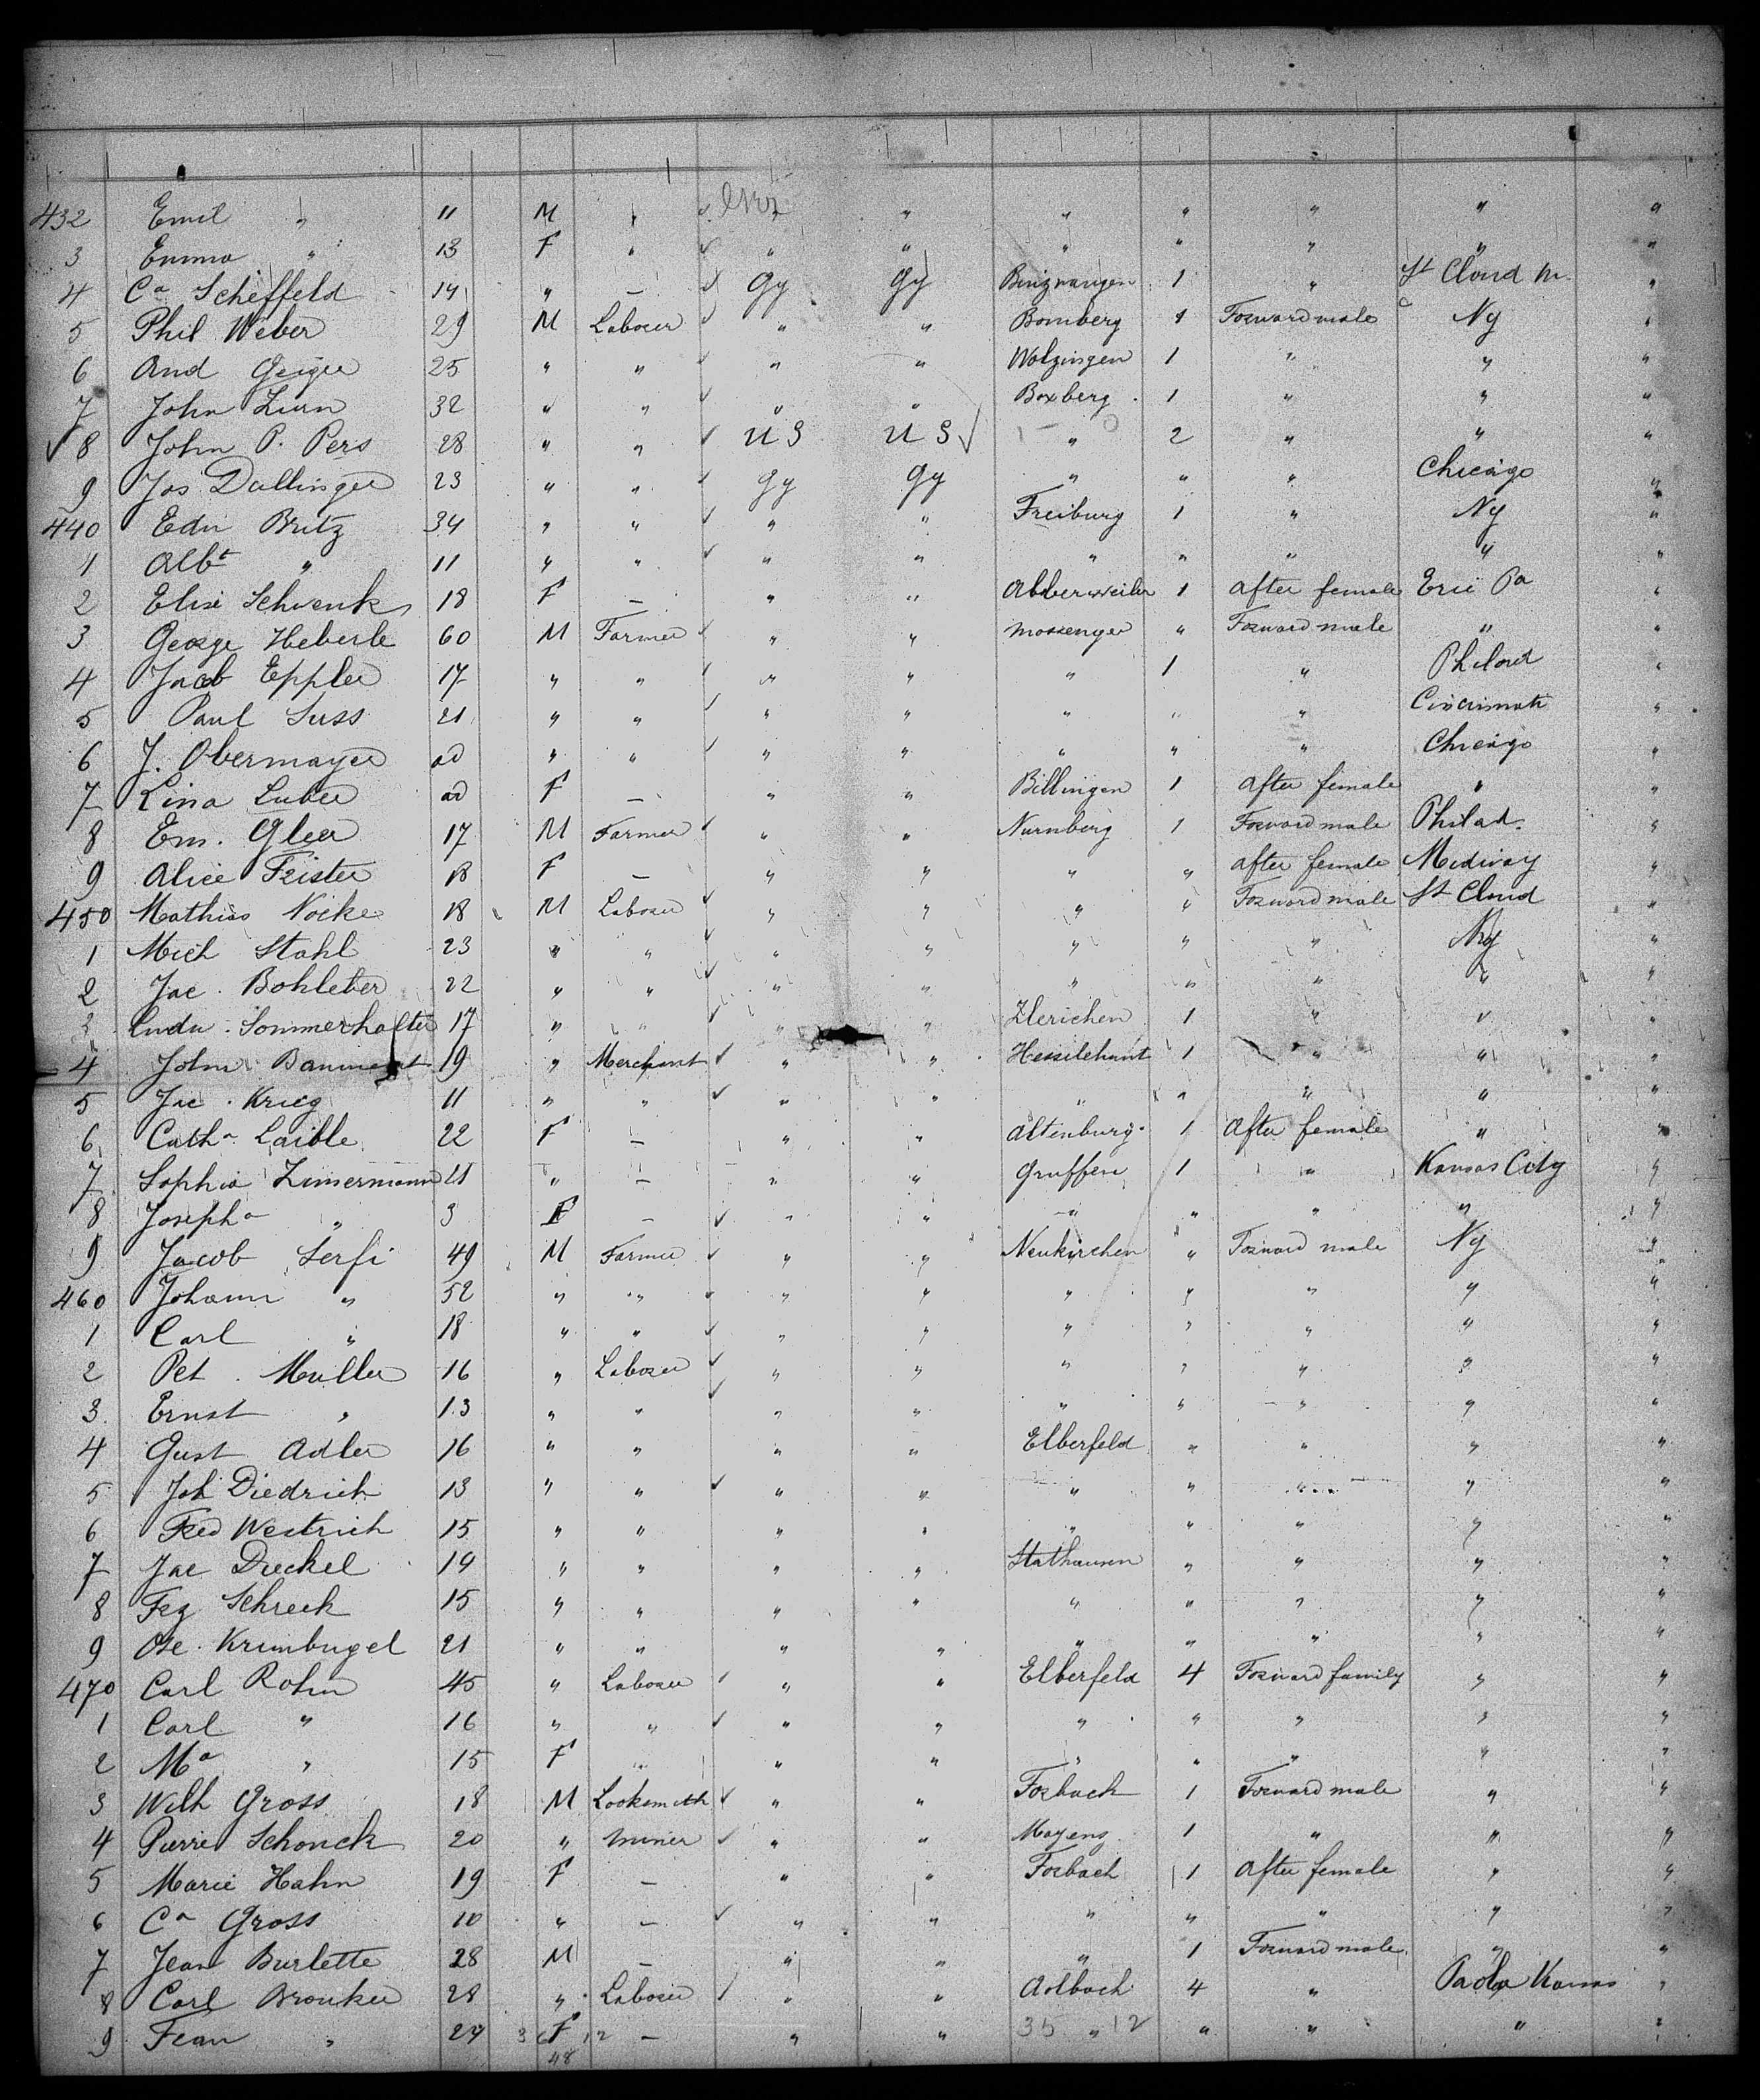 432 Emil " 11 M " " " " " " " "
3 Emma " 13 F " " " " " " " "
4 Ca Scheffeld 14 " — Gy Gy Binzwangen 1 " St Cloud M. "
5 Phil Weber 29 M Laborer " " Bomberg 1 Forward male Ny "
6 And Geiger 25 " " " " Wolzingen 1 " " "
7 John Zurn 32 " " " " Boxberg 1 " " "
8 John P. Pers 28 " " U S U S " 2 " " "
9 Jos Dallinger 23 " " Gy Gy " " " Chicago "
440 Edw Britz 34 " " " " Freiburg 1 " Ny "
1 Albt " 11 " " " " " " " " "
2 Elise Schwenk 18 F — " " Abberweiler 1 After female Erie Pa "
3 George Heberle 60 M Farmer " " Mossenger " Forward male " "
4 Jacob Eppler 17 " " " " " 1 " Philad "
5 Paul Suss 21 " " " " " " " Cincinnati "
6 J. Obermayer ad " " " " " " " Chicago "
7 Lina Luber ad F — " " Billingen 1 After female " "
8 Em. Gleer 17 M Farmer " " Nurnberg 1 Forward male Philad. "
9 Alice Frister 18 F — " " " " After female Midway "
450 Mathias Noike 18 M Laborer " " " " Forward male St Cloud "
1 Mich Stahl 23 " " " " " " " Ny "
2 Jac. Bohleber 22 " " " " " " " " "
3 Ludw. Sommerhalter 17 " " " " Zlerichen 1 " " "
4 John 19 " Merchant " " Hessilehunt 1 " " "
5 Jac. Krieg 11 " " " " " " " " "
6 Catha Laible 22 F — " " Altenburg 1 After female " "
7 Sophia Zimermann 21 " — " " Gruffen 1 " Kansas City "
8 Josepha " 3 F — " " " " " " "
9 Jacob Serfi 49 M Farmer " " Neukirchen " Forward male Ny "
460 Johann " 52 " " " " " " " " "
1 Carl " 18 " " " " " " " " "
2 Pet. Muller 16 " Laborer " " " " " " "
3 Ernst " 13 " " " " " " " " "
4 Gust Adler 16 " " " " Elberfeld " " " "
5 Joh Diedrich 13 " " " " " " " " "
6 Fred Westrich 15 " " " " " " " " "
7 Jac Dieckel 14 " " " " Stathausen " " " "
8 Frz Schreck 15 " " " " " " " " "
9 Krumbugel 21 " " " " " " " " "
470 Carl Rohm 45 " Laborer " " Elberfeld 4 Forward family " "
1 Carl " 16 " " " " " " " " "
2 Ma " 15 F " " " " " " " "
3 Wilh Gross 18 M Locksmith " " Forbach 1 Forward male " "
4 Pierre Schonck 20 " Miner " " Mayens 1 " " "
5 Marie Hahn 19 F — " " Forbach 1 After female " "
6 Ca Gross 10 " — " " " " " " "
7 Jean Burlette 28 M — " " " 1 Forward male " "
8 Carl Bronker 28 " Laborer " " Aolbach 4 " Paola Kansas "
9 Frau " 24 3 6 F 12 — " " 35 " 12 " " " "
48